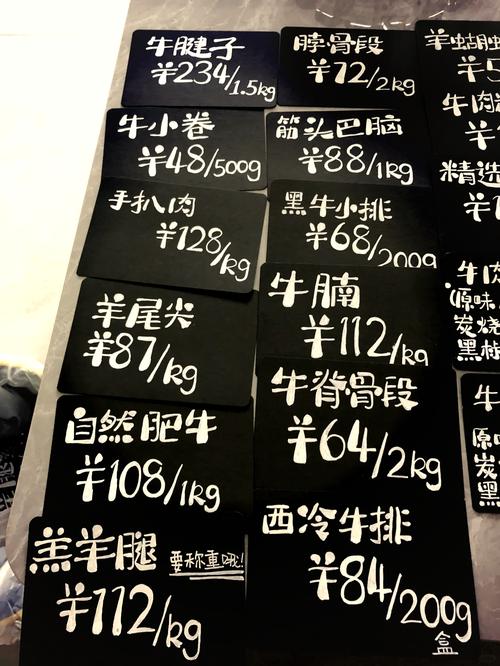 牛腱子
¥234/1.5kg
牛小卷
¥48/500g
手扒肉
¥128/kg
羊尾尖
¥87/kg
自然肥牛
¥108/1kg
羔羊腿 要称重哦!
¥112/kg
脖骨段
¥72/2kg
筋头巴脑
¥88/1kg
黑牛小排
¥68/200g
牛腩
¥112/kg
牛脊骨段
¥64/2kg
西冷牛排
¥84/200g
盒
羊蝴
¥5
牛肉
¥
精选
¥1
牛肉
(原味
炭烧
黑椒
牛
原
炭
黑